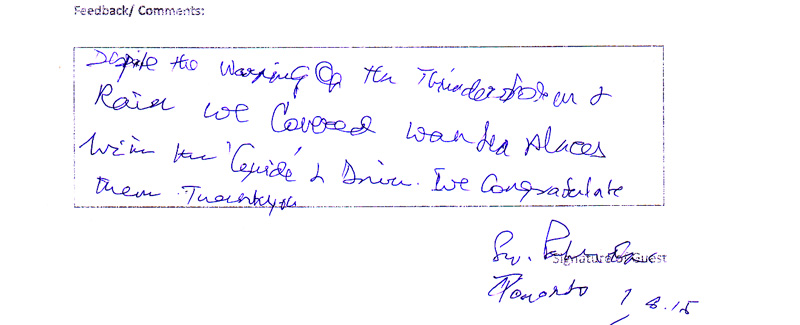 Feedback/ Comments:
Despite the Warning of the Thunderstorm &
Rain we Covered wanted places
With the 'Guide' & Driver. We Congratulate
them Thankyou
Signature of Guest
Toronto 1.8.15